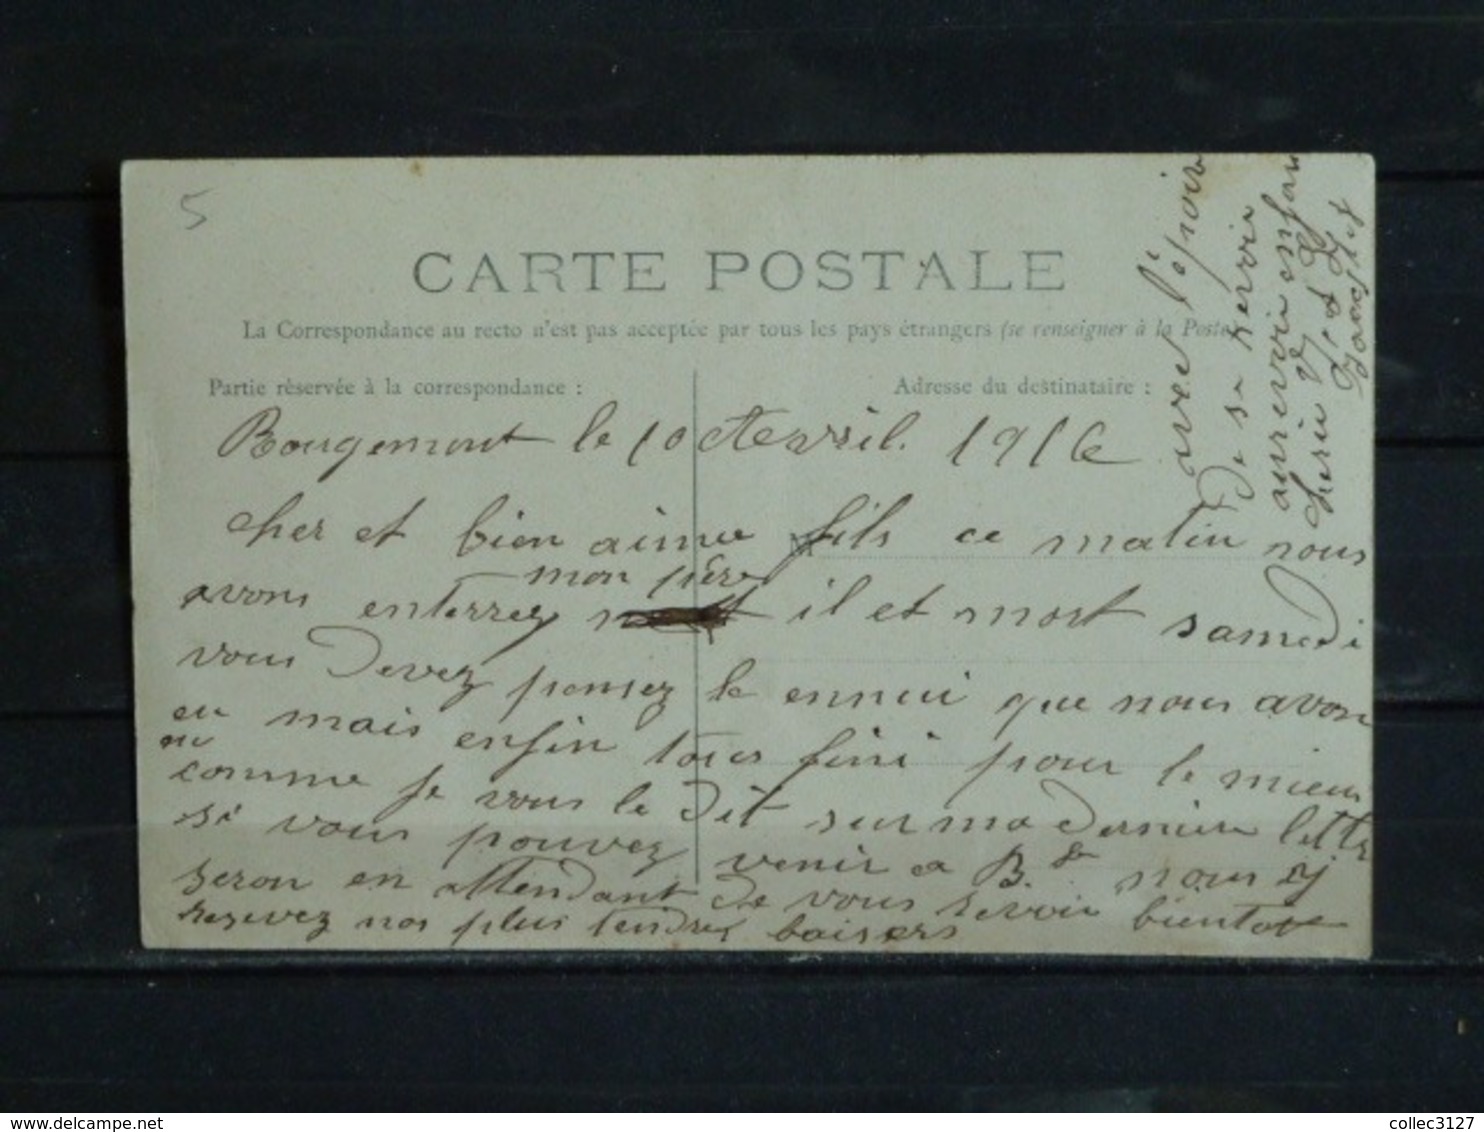 5
CARTE POSTALE
La Correspondance au recto n'est pas acceptée par tous les pays étrangers (se renseigner à la Poste
Partie réservée à la correspondance :
Adresse du destinataire :
Bougemont le 10 avril. 1916
cher et bien aimee fils ce matin nous
mon père
avons enterrez il et mort samedi
vous devez pensez le ennui que nous avon
eu mais enfin tous fini pour le mieux
comme je vous le dit sur ma derniere lettre
si vous pouvez venir a B. nous sy
seron en attendant de vous revoir bientot
resevez nos plus tendres baisers
avec l'espoir
de se revoir
aurevoir enfan
cherie
© www.delcampe.net
collec3127